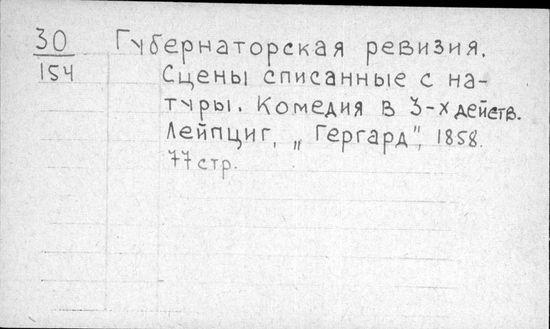 30 Губернаторская ревизия.
154 Сцены списанные с на-
туры. Комедия в 3-х действ.
Лейпциг, „Гергард", 1858.
77 стр.